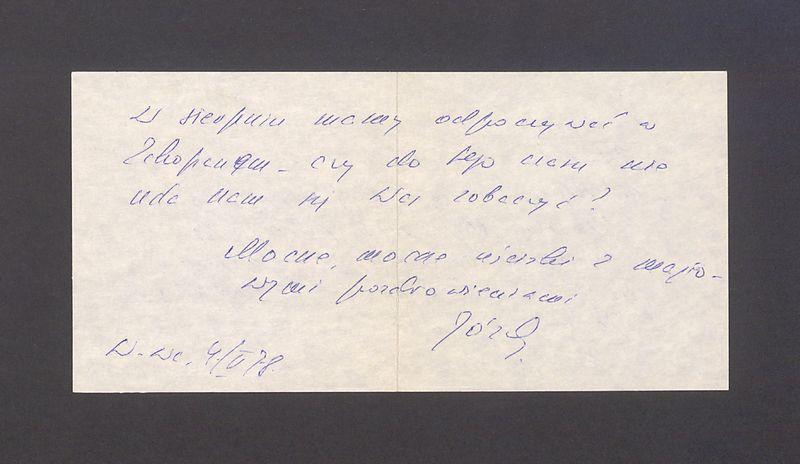 W sierpniu mamy odpoczywać w
Zakopanym – czy do tego czasu nie
uda nam się Was zobaczyć?
Mocne, mocne uściski z majo-
wymi pozdrowieniami
W-wa, 4/V 78.